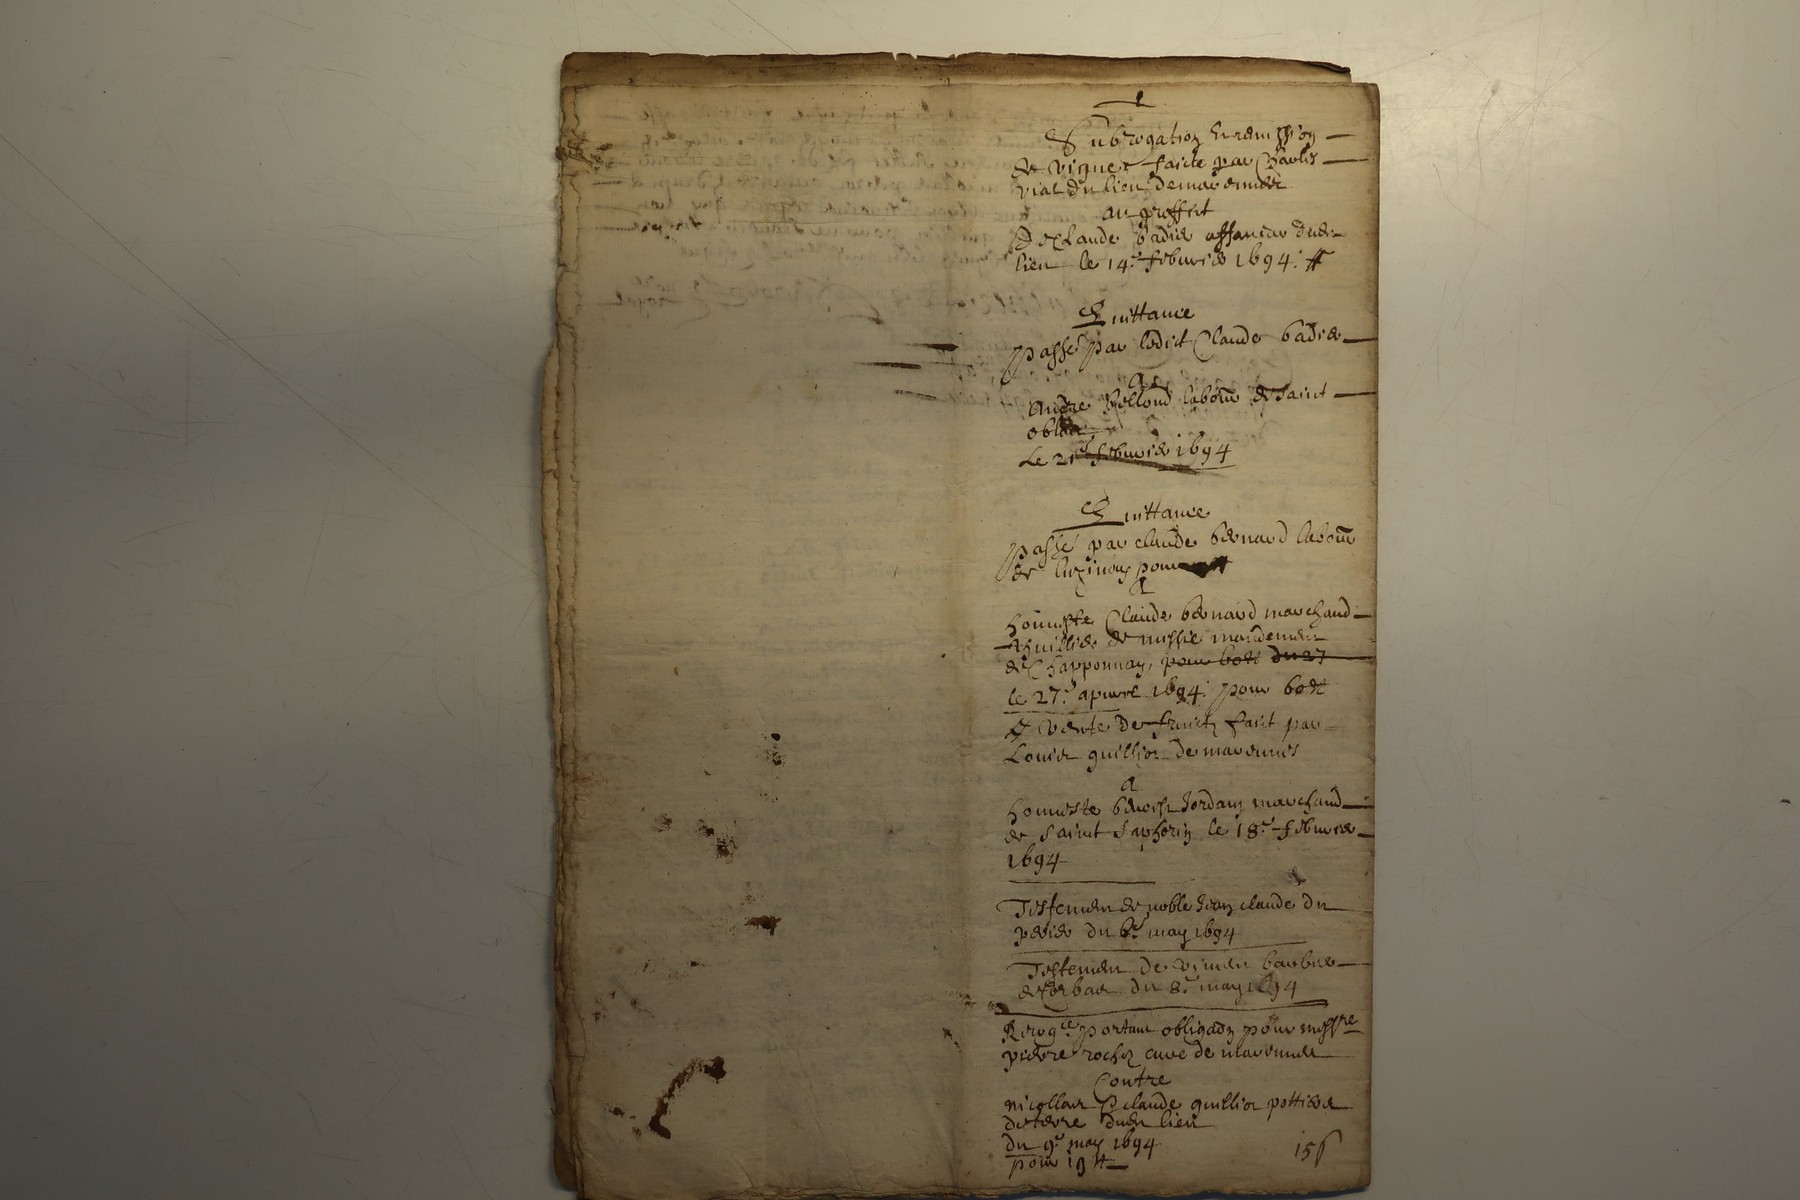 Subrogation Et remission
de vignes faicte par Charles
vial du lieu de marennes
au proffict
De Claude badier affaneur dudt
lieu le 14e. febvrier 1694.
Quittance
passé par ledict Claude badier
A
Andre labour de Saint
Le 21e febvrier 1694
Quittance
passé par claude bernard labour
de luzinay pour
A
honneste Claude bernard marchand
thuillier de mandement
de Chapponnay, pour 60tt du 27
le 27e apvril 1694. pour 60tt
vente de fruictz faict par
Louis guillior de marennes
A
honneste benoist Jordain marchand
de Saint Saphorin le 18e. febvrier
1694
Testement de noble Jean claude du
perier du 6e. may 1694
Testement de barbier
du 8e. may 1694
portant obligaon pour messre
pierre rochez curé de marennes
Contre
nicollas & claude guillior pottiers
de terre dudt lieu
du 9e. may 1694
pour 19tt
156